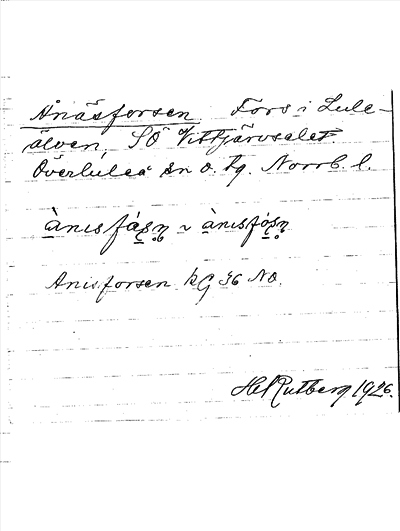 Ånäsforsen. Fors i Lule-
älven, SÖ Vittjärvselet.
Överluleå sn o. tg. Norrb. l.
ànɩsfás̨n̥ ~ ànɩsfós̨n̥
Anisforsen kG 36 NO.
Hel Rutberg 1926.